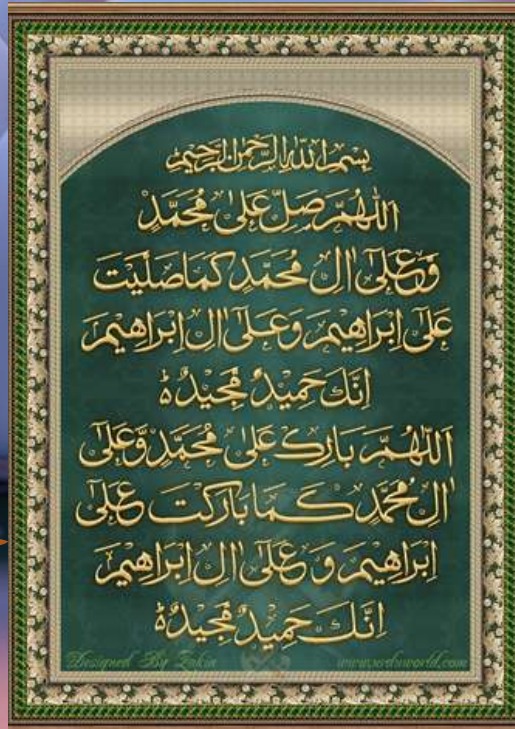 بسم الله الرحمن الرحيم
اَللّٰهُمَّ صَلِّ عَلٰى مُحَمَّدٍ
وَّعَلٰٓى اٰلِ مُحَمَّدٍ كَمَا صَلَّيْتَ
عَلٰٓى اِبْرَاهِيْمَ وَعَلٰٓى اٰلِ اِبْرَاهِيْمَ
اِنَّكَ حَمِيْدٌ مَّجِيْدٌ ۃ
اَللّٰهُمَّ بَارِكْ عَلٰى مُحَمَّدٍ وَّعَلٰٓى
اٰلِ مُحَمَّدٍ كَمَا بَارَكْتَ عَلٰٓى
اِبْرَاهِيْمَ وَعَلٰٓى اٰلِ اِبْرَاهِيْمَ
اِنَّكَ حَمِيْدٌ مَّجِيْدٌ ۃ
Designed By Zakir www.urduworld.com